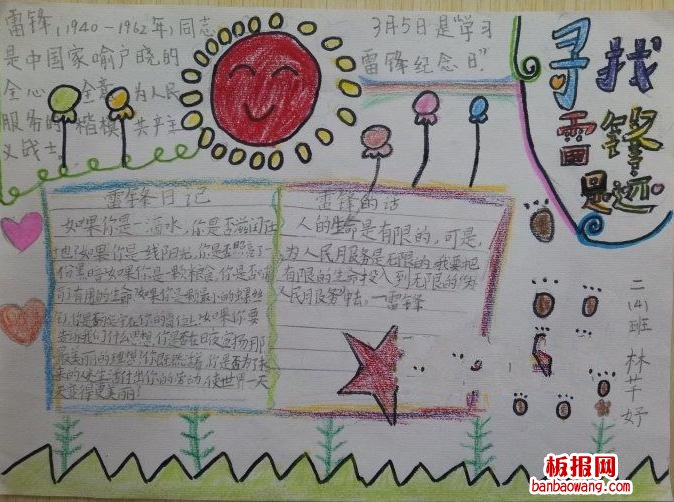 雷锋(1940-1962年)同志
是中国家喻户晓的
全心全意为人民
服务的楷模,共产主
义战士。
3月5日是"学习
雷锋纪念日"
寻找
雷锋
足迹
雷锋日记
如果你是一滴水,你是否滋润在
一线阳光,你是否照亮了
一份黑暗如果你是一颗粮食,你是否
有用的生命如果你是最小的螺丝
你是否坚守在你的岗位上如果你要
告诉我们什么思想,你是否在日夜宣扬那
最美丽的理想你既然活着,你是否为了未
来的人类生活付出你的劳动,使世界一天
天变得更美丽!
雷锋的话
人的生命是有限的,可是,
为人民服务是无限的,我要把
有限的生命投入到无限的"为
人民服务"中去。—雷锋
二(4)班 林芊妤
板报网
banbaowang.com